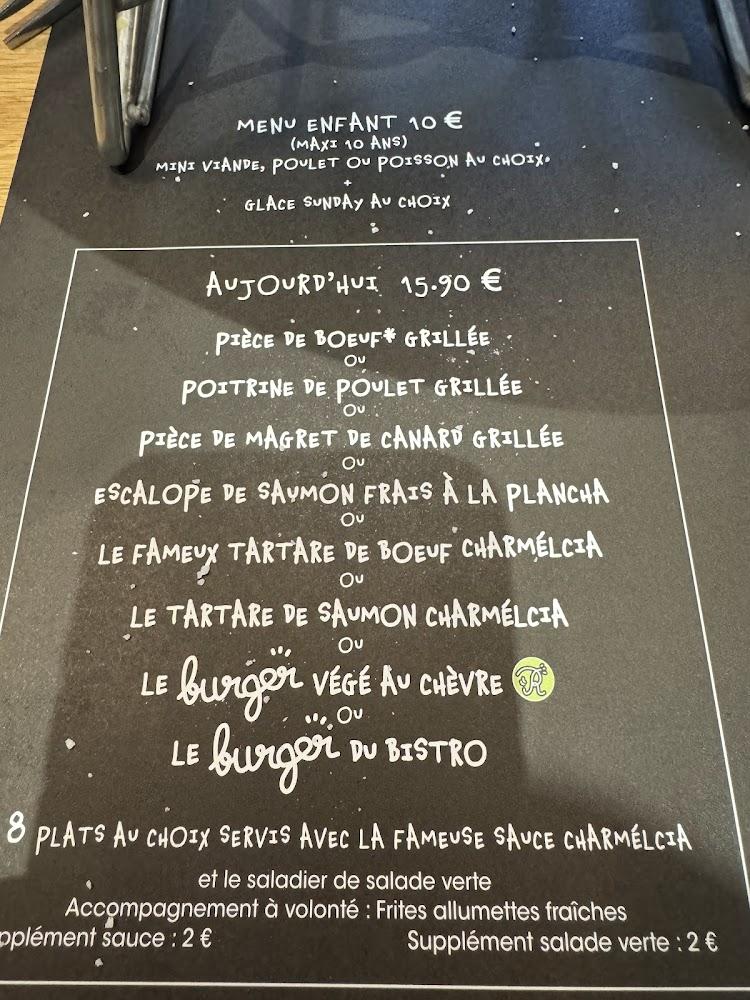 MENU ENFANT 10 €
(MAXI 10 ANS)
MINI VIANDE, POULET OU POISSON AU CHOIX
+
GLACE SUNDAY AU CHOIX
AUJOURD'HUI 15.90 €
PIÈCE DE BOEUF* GRILLÉE
OU
POITRINE DE POULET GRILLÉE
OU
PIÈCE DE MAGRET DE CANARD GRILLÉE
OU
ESCALOPE DE SAUMON FRAIS À LA PLANCHA
OU
LE FAMEUX TARTARE DE BOEUF CHARMÉLCIA
OU
LE TARTARE DE SAUMON CHARMÉLCIA
OU
LE burger VÉGÉ AU CHÈVRE
OU
LE burger DU BISTRO
8 PLATS AU CHOIX SERVIS AVEC LA FAMEUSE SAUCE CHARMÉLCIA
et le saladier de salade verte
Accompagnement à volonté : Frites allumettes fraîches
pplément sauce : 2 € Supplément salade verte : 2 €